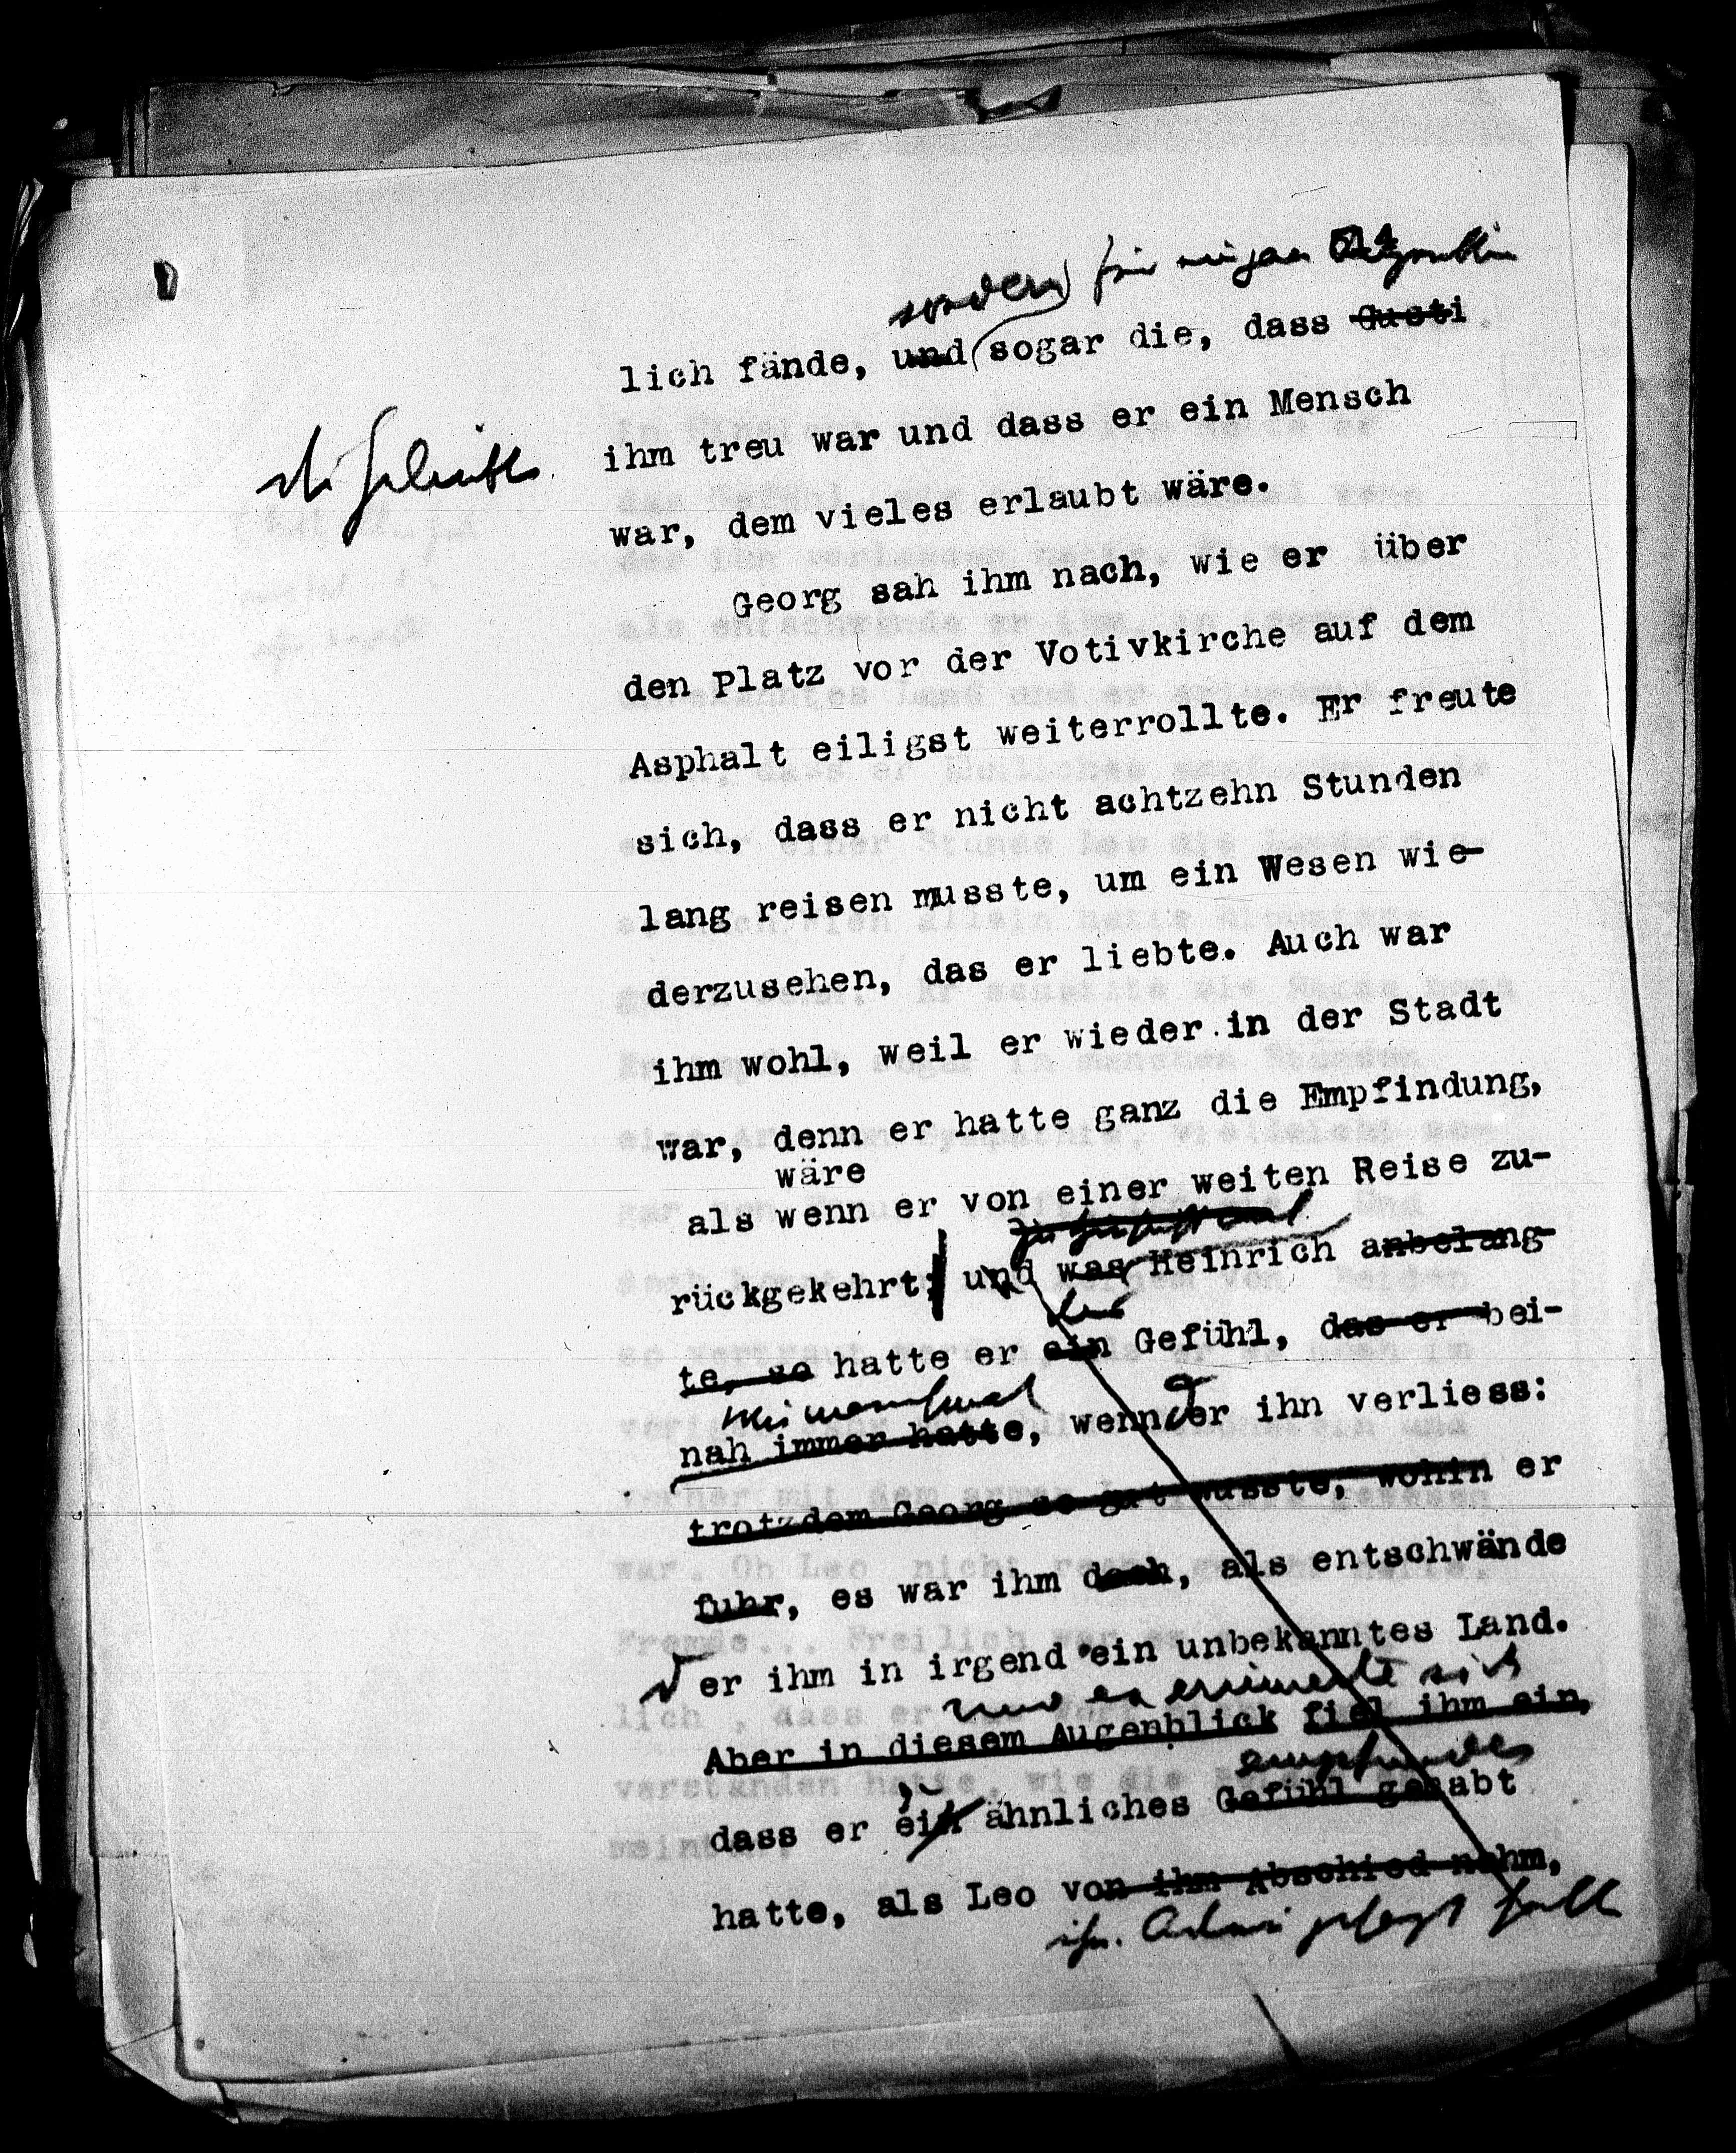 sondern für einigen Augenblick
lich fände, und sogar die, dass Gusti
die Geliebte
ihm treu war und dass er ein Mensch
war, dem vieles erlaubt wäre.
Georg sah ihm nach, wie er über
den Platz vor der Votivkirche auf dem
Asphalt eiligst weiterrollte. Er freute
sich, dass er nicht achtzehn Stunden
lang reisen musste, um ein Wesen wie-
derzusehen, das er liebte. Auch war
ihm wohl, weil er wieder in der Stadt
war, denn er hatte ganz die Empfindung,
wäre
als wenn er von einer weiten Reise zu-
rückgekehrt; und was Heinrich anbelang-
das
te, so hatte er ein Gefühl, das er bei-
wie manchmal
nah immer hatte, wenn der ihn verliess:
trotzdem Georg so gut wusste, wohin er
fuhr, es war ihm doch, als entschwände
er ihm in irgend ein unbekanntes Land.
und er erinnerte sich
Aber in diesem Augenblick fiel ihm ein,
empfunden
dass er ein ähnliches Gefühl gehabt
hatte, als Leo von ihm Abschied nahm,
ihm Adieu gesagt hatte